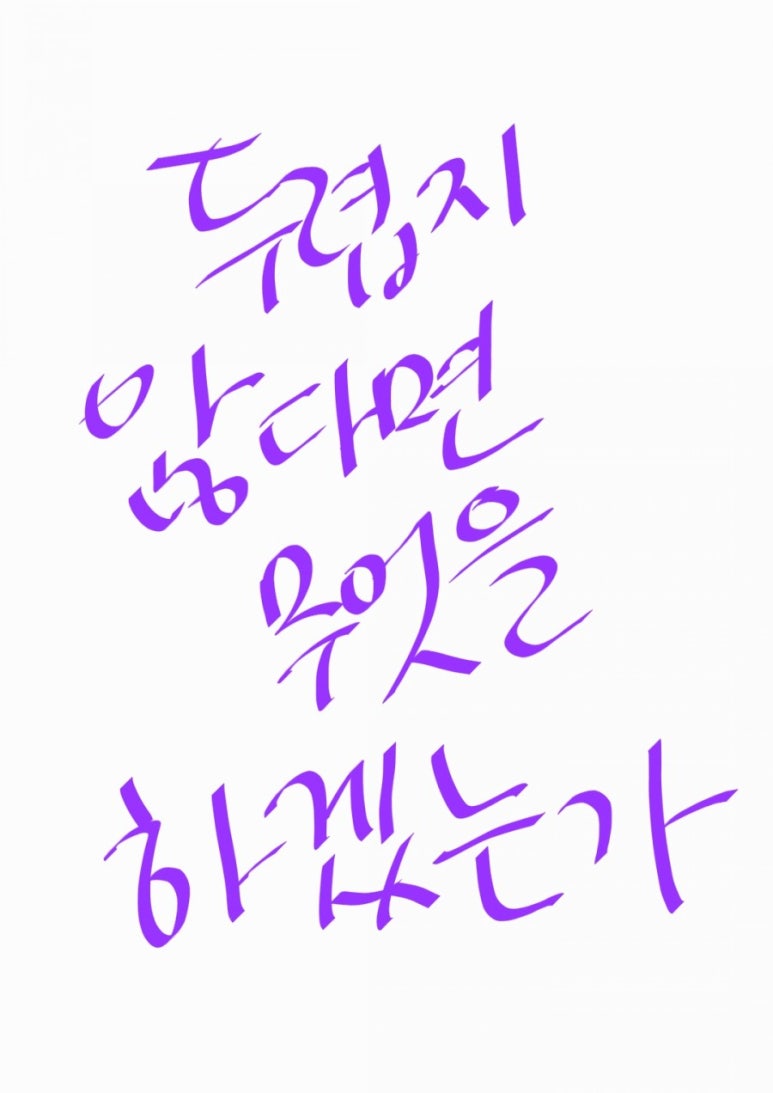 두렵지
않다면
무엇을
하겠는가